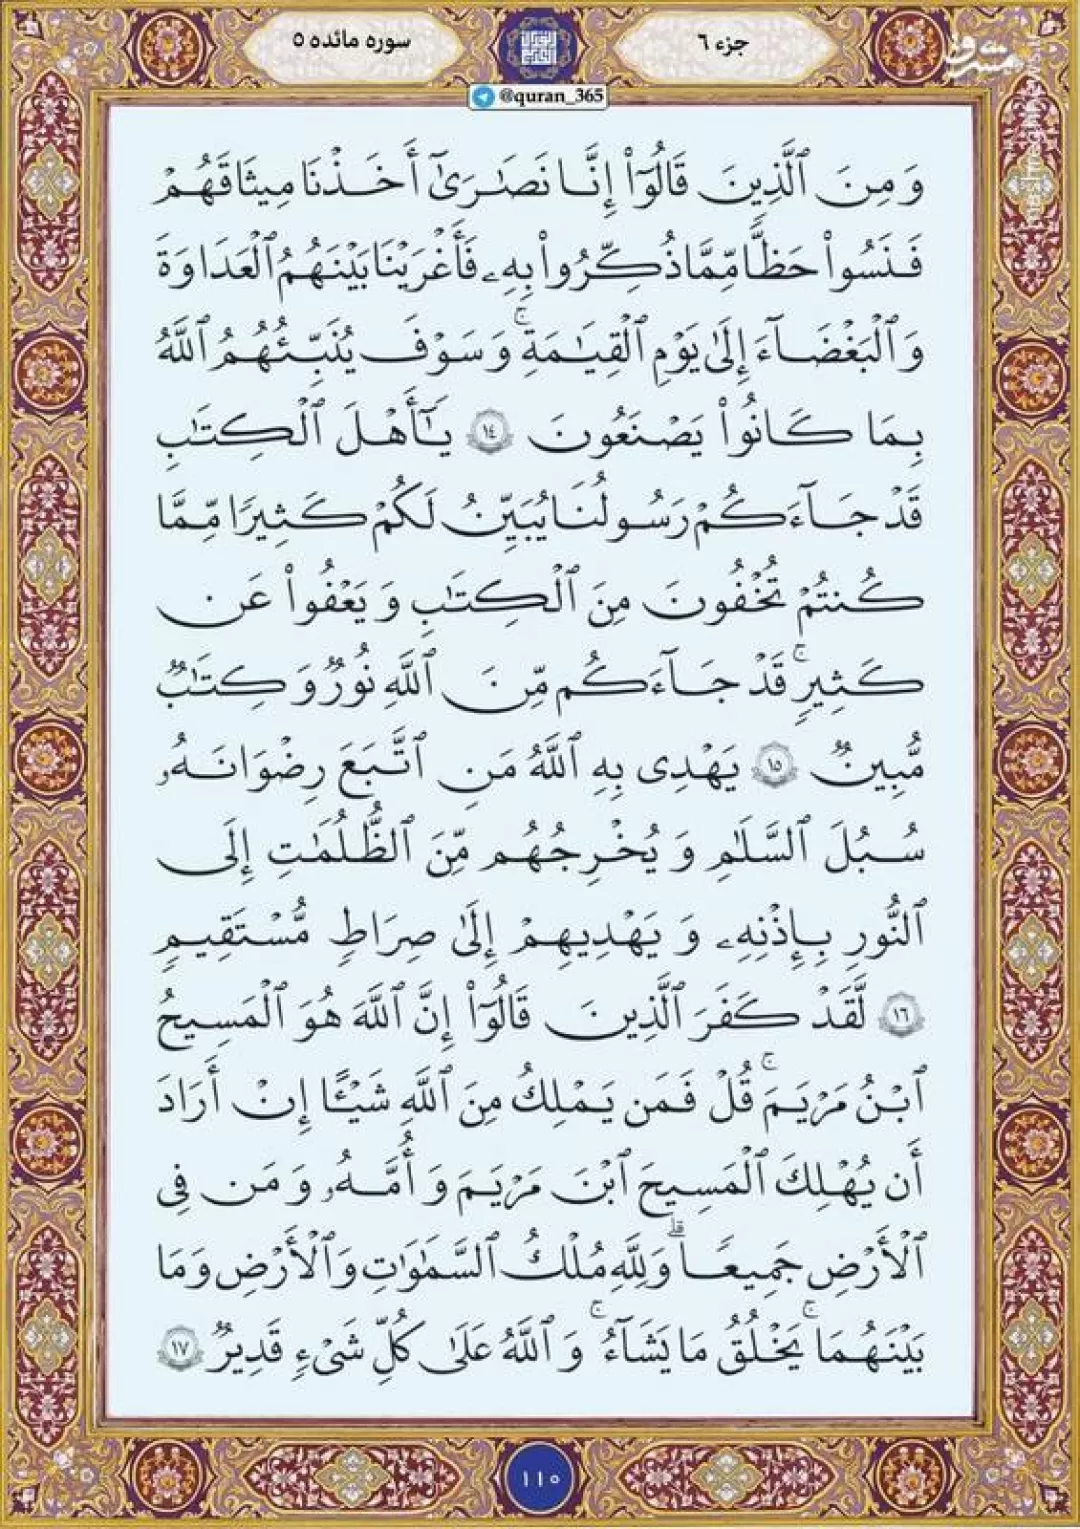 جزء ۶
سوره مائده ۵
@quran_365
مشرق
mashreghnews.ir
وَمِنَ ٱلَّذِينَ قَالُوٓا۟ إِنَّا نَصَٰرَىٰٓ أَخَذْنَا مِيثَاقَهُمْ
فَنَسُوا۟ حَظًّا مِّمَّا ذُكِّرُوا۟ بِهِۦ فَأَغْرَيْنَا بَيْنَهُمُ ٱلْعَدَاوَةَ
وَٱلْبَغْضَآءَ إِلَىٰ يَوْمِ ٱلْقِيَٰمَةِ ۚ وَسَوْفَ يُنَبِّئُهُمُ ٱللَّهُ
بِمَا كَانُوا۟ يَصْنَعُونَ ١٤ يَٰٓأَهْلَ ٱلْكِتَٰبِ
قَدْ جَآءَكُمْ رَسُولُنَا يُبَيِّنُ لَكُمْ كَثِيرًا مِّمَّا
كُنتُمْ تُخْفُونَ مِنَ ٱلْكِتَٰبِ وَيَعْفُوا۟ عَن
كَثِيرٍ ۚ قَدْ جَآءَكُم مِّنَ ٱللَّهِ نُورٌ وَكِتَٰبٌ
مُّبِينٌ ١٥ يَهْدِى بِهِ ٱللَّهُ مَنِ ٱتَّبَعَ رِضْوَانَهُۥ
سُبُلَ ٱلسَّلَٰمِ وَيُخْرِجُهُم مِّنَ ٱلظُّلُمَٰتِ إِلَى
ٱلنُّورِ بِإِذْنِهِۦ وَيَهْدِيهِمْ إِلَىٰ صِرَاطٍ مُّسْتَقِيمٍ
١٦ لَّقَدْ كَفَرَ ٱلَّذِينَ قَالُوٓا۟ إِنَّ ٱللَّهَ هُوَ ٱلْمَسِيحُ
ٱبْنُ مَرْيَمَ ۚ قُلْ فَمَن يَمْلِكُ مِنَ ٱللَّهِ شَيْـًٔا إِنْ أَرَادَ
أَن يُهْلِكَ ٱلْمَسِيحَ ٱبْنَ مَرْيَمَ وَأُمَّهُۥ وَمَن فِى
ٱلْأَرْضِ جَمِيعًا ۗ وَلِلَّهِ مُلْكُ ٱلسَّمَٰوَٰتِ وَٱلْأَرْضِ وَمَا
بَيْنَهُمَا ۚ يَخْلُقُ مَا يَشَآءُ ۚ وَٱللَّهُ عَلَىٰ كُلِّ شَىْءٍ قَدِيرٌ ١٧
١١٠